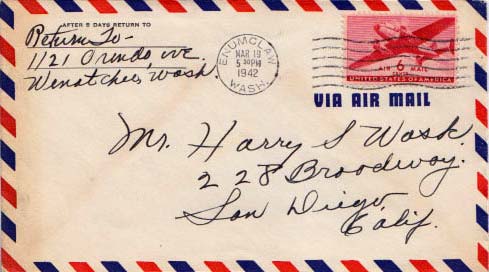 AFTER 5 DAYS RETURN TO
Return To-
1121 Orondo ave.
Wenatchee, Wash.
ENUMCLAW
MAR 19
5 30 PM
1942
WASH.
AIR 6 MAIL
UNITED STATES OF AMERICA
VIA AIR MAIL
Mr. Harry S Wask.
228 Broadway.
San Diego
Calif.